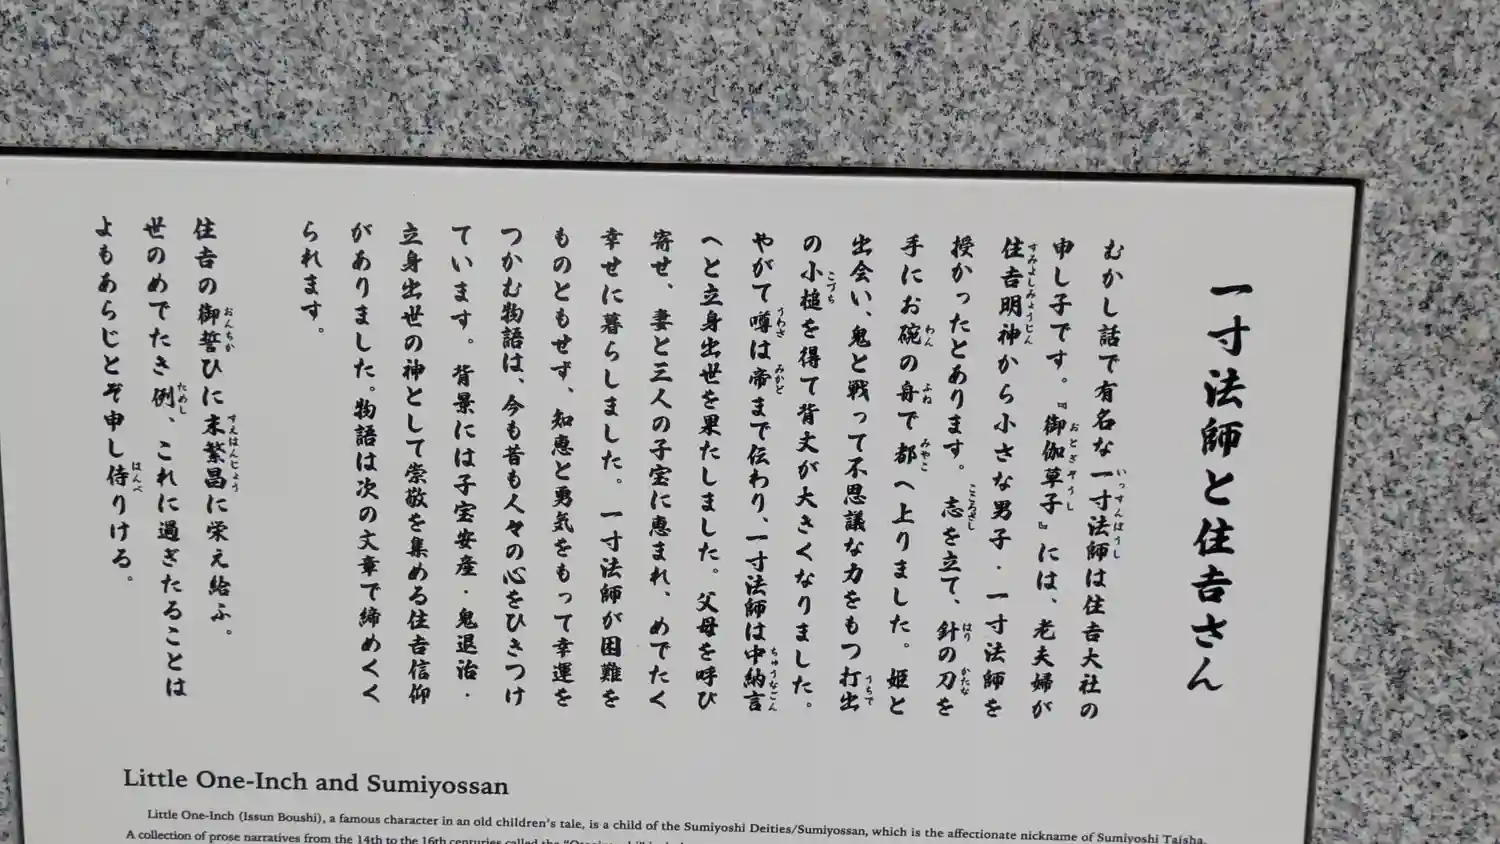 一寸法師と住吉さん
むかし話で有名な一寸法師は住吉大社の
申し子です。『御伽草子』には、老夫婦が
住吉明神から小さな男子・一寸法師を
授かったとあります。志を立て、針の刀を
手にお碗の舟で都へ上りました。姫と
出会い、鬼と戦って不思議な力をもつ打出
の小槌を得て背丈が大きくなりました。
やがて噂は帝まで伝わり、一寸法師は中納言
へと立身出世を果たしました。父母を呼び
寄せ、妻と三人の子宝に恵まれ、めでたく
幸せに暮らしました。一寸法師が困難を
ものともせず、知恵と勇気をもって幸運を
つかむ物語は、今も昔も人々の心をひきつけ
ています。背景には子宝安産・鬼退治・
立身出世の神として崇敬を集める住吉信仰
がありました。物語は次の文章で締めくく
られます。
住吉の御誓ひに末繁昌に栄え給ふ。
世のめでたき例、これに過ぎたることは
よもあらじとぞ申し侍りける。
Little One-Inch and Sumiyossan
Little One-Inch (Issun Boushi), a famous character in an old children's tale, is a child of the Sumiyoshi Deities/Sumiyossan, which is the affectionate nickname of Sumiyoshi Taisha.
A collection of prose narratives from the 14th to the 16th centuries called the